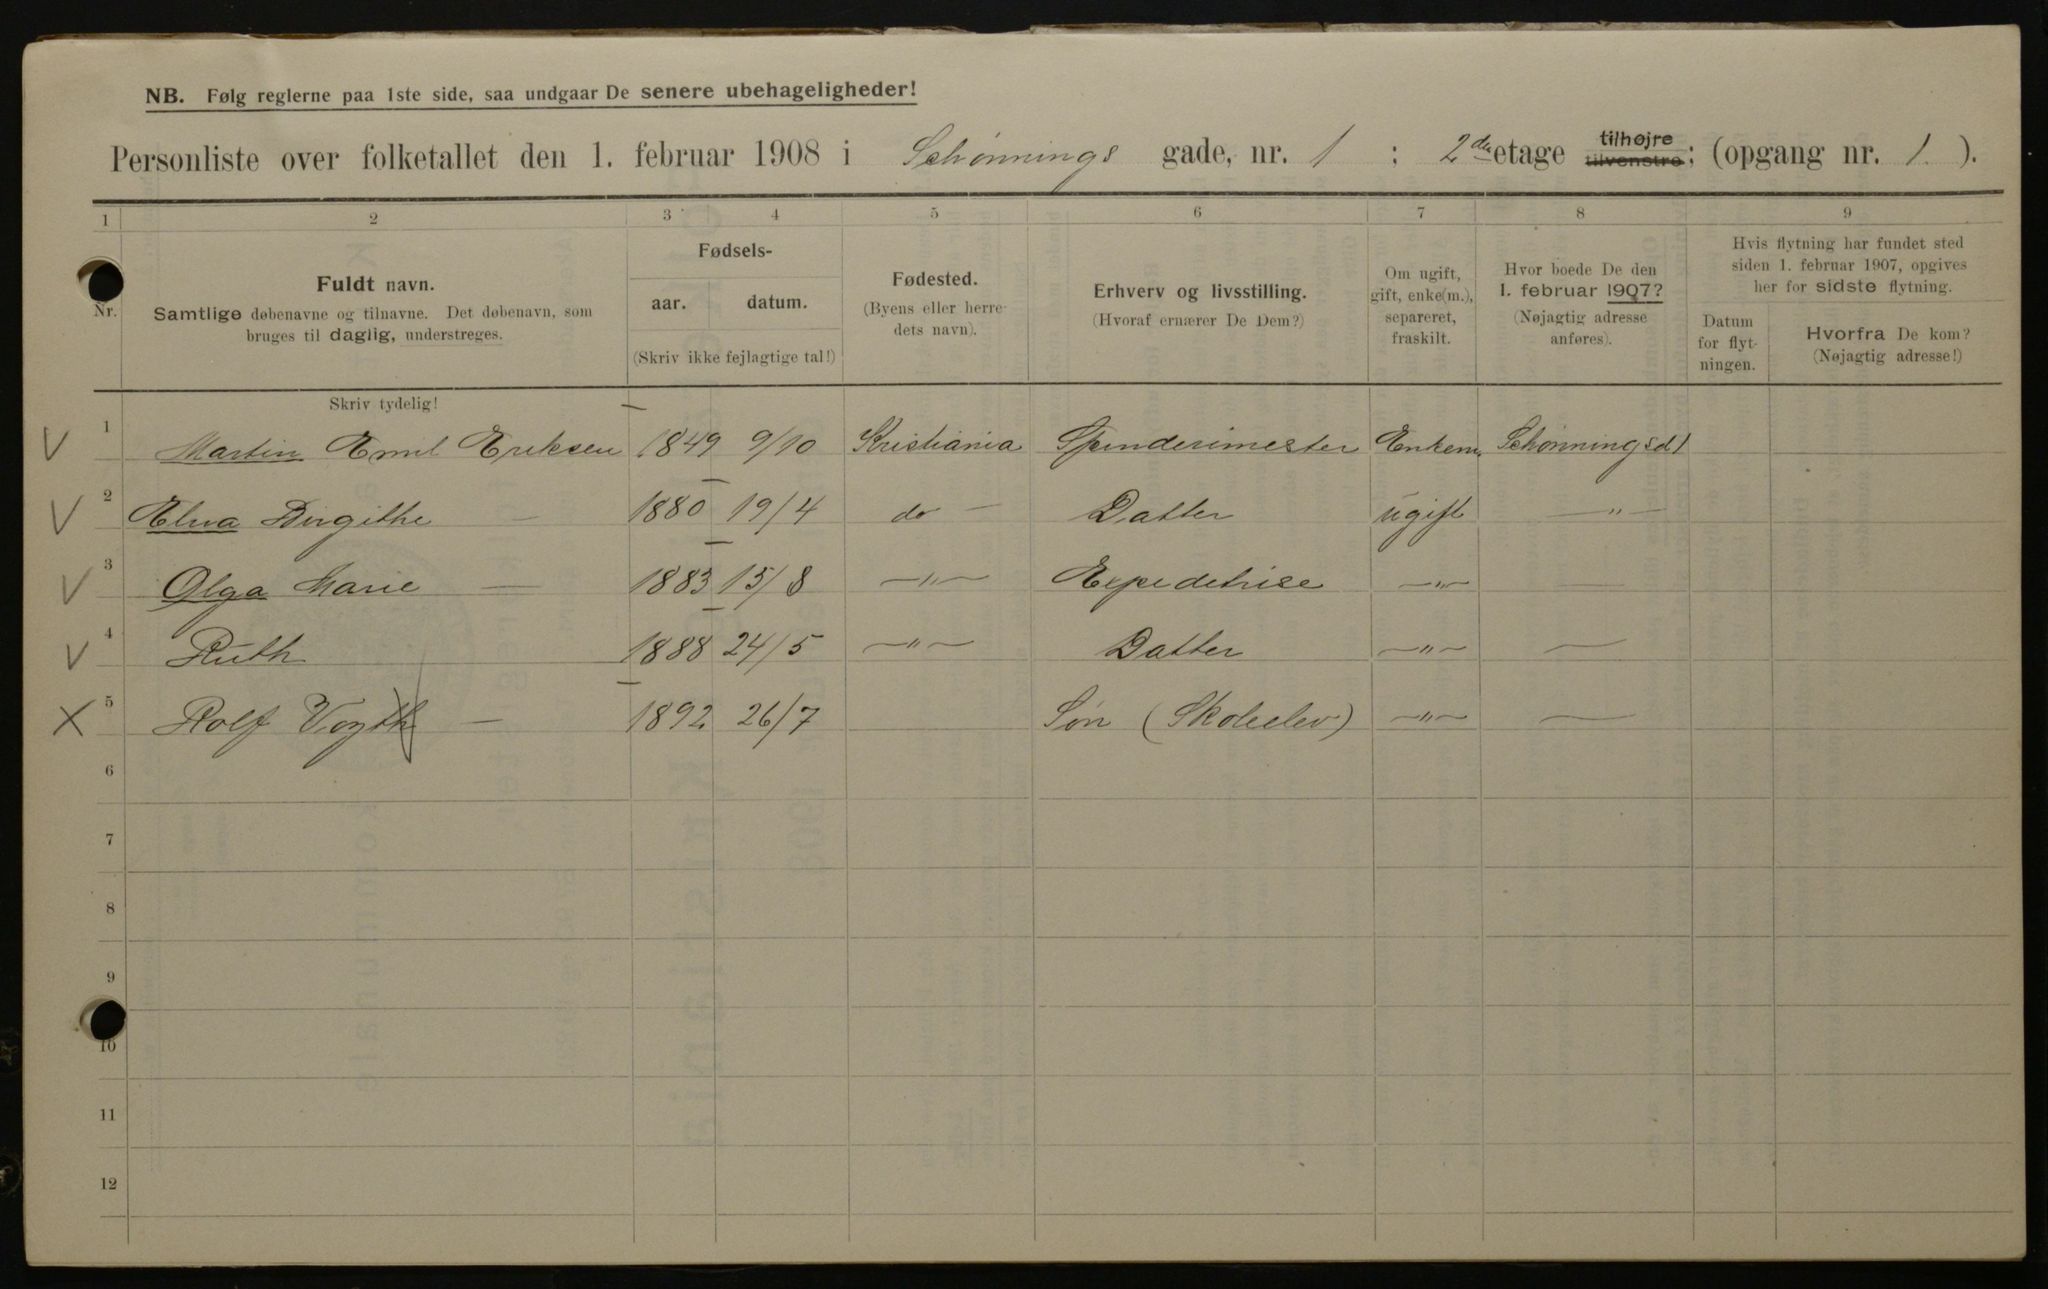 NB. Følg reglerne paa 1ste side, saa undgaar De senere ubehageligheder!
Personliste over folketallet den 1. februar 1908 i Schønnings gade, nr. 1 ; 2den etage tilhøjre tilvenstre; (opgang nr. 1.).
1 2 3 4 5 6 7 8 9
Nr.
Fuldt navn.
Samtlige døbenavne og tilnavne. Det døbenavn, som
bruges til daglig, understreges.
Fødsels-
aar. datum.
(Skriv ikke fejlagtige tal!)
Fødested.
(Byens eller herre-
dets navn).
Erhverv og livsstilling.
(Hvoraf ernærer De Dem?)
Om ugift,
gift, enke(m.),
separeret,
fraskilt.
Hvor boede De den
1. februar 1907?
(Nøjagtig adresse
anføres).
Hvis flytning har fundet sted
siden 1. februar 1907, opgives
her for sidste flytning.
Datum
for flyt-
ningen.
Hvorfra De kom?
(Nøjagtig adresse!)
Skriv tydelig!
V 1 Martin Emil Eriksen 1849 9/10 Kristiania Spinderimester Enkem. Schønningsd 1
V 2 Elna Birgithe — 1880 19/4 do — Datter ugift —"—
V 3 Olga Marie — 1883 15/8 —"— Expeditrise —"— —
V 4 Ruth 1888 24/5 —"— Datter —"— —
X 5 Rolf — 1892 26/7 Søn (Skoleelev) —"— —
6
7
8
9
10
11
12